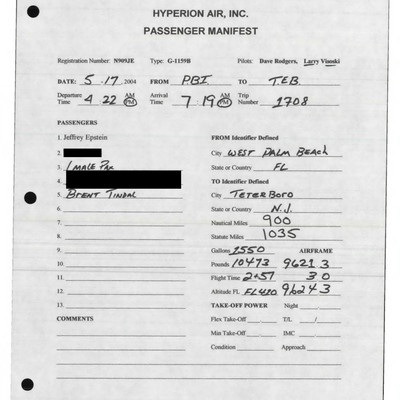 HYPERION AIR, INC.
PASSENGER MANIFEST
Registration Number: N909JE Type: G-1159B Pilots: Dave Rodgers, Larry Visoski
DATE: 5-17/2004 FROM PBI TO TEB
Departure Time 4 22 AM PM Arrival Time 7 19 AM PM Trip Number 1708
PASSENGERS
1. Jeffrey Epstein
2.
3. 1 MALE PAX
4.
5. BRENT TINDAL
6.
7.
8.
9.
10.
11.
12.
13.
COMMENTS
FROM Identifier Defined
City WEST PALM BEACH
State or Country FL
TO Identifier Defined
City TETERBORO
State or Country N.J.
Nautical Miles 900
Statute Miles 1035
Gallons 1550 AIRFRAME
Pounds 10473 9621 3
Flight Time 2+57 3 0
Altitude FL 9624 3
TAKE-OFF POWER Night
Flex Take-Off T/L /
Min Take-Off IMC
Condition Approach